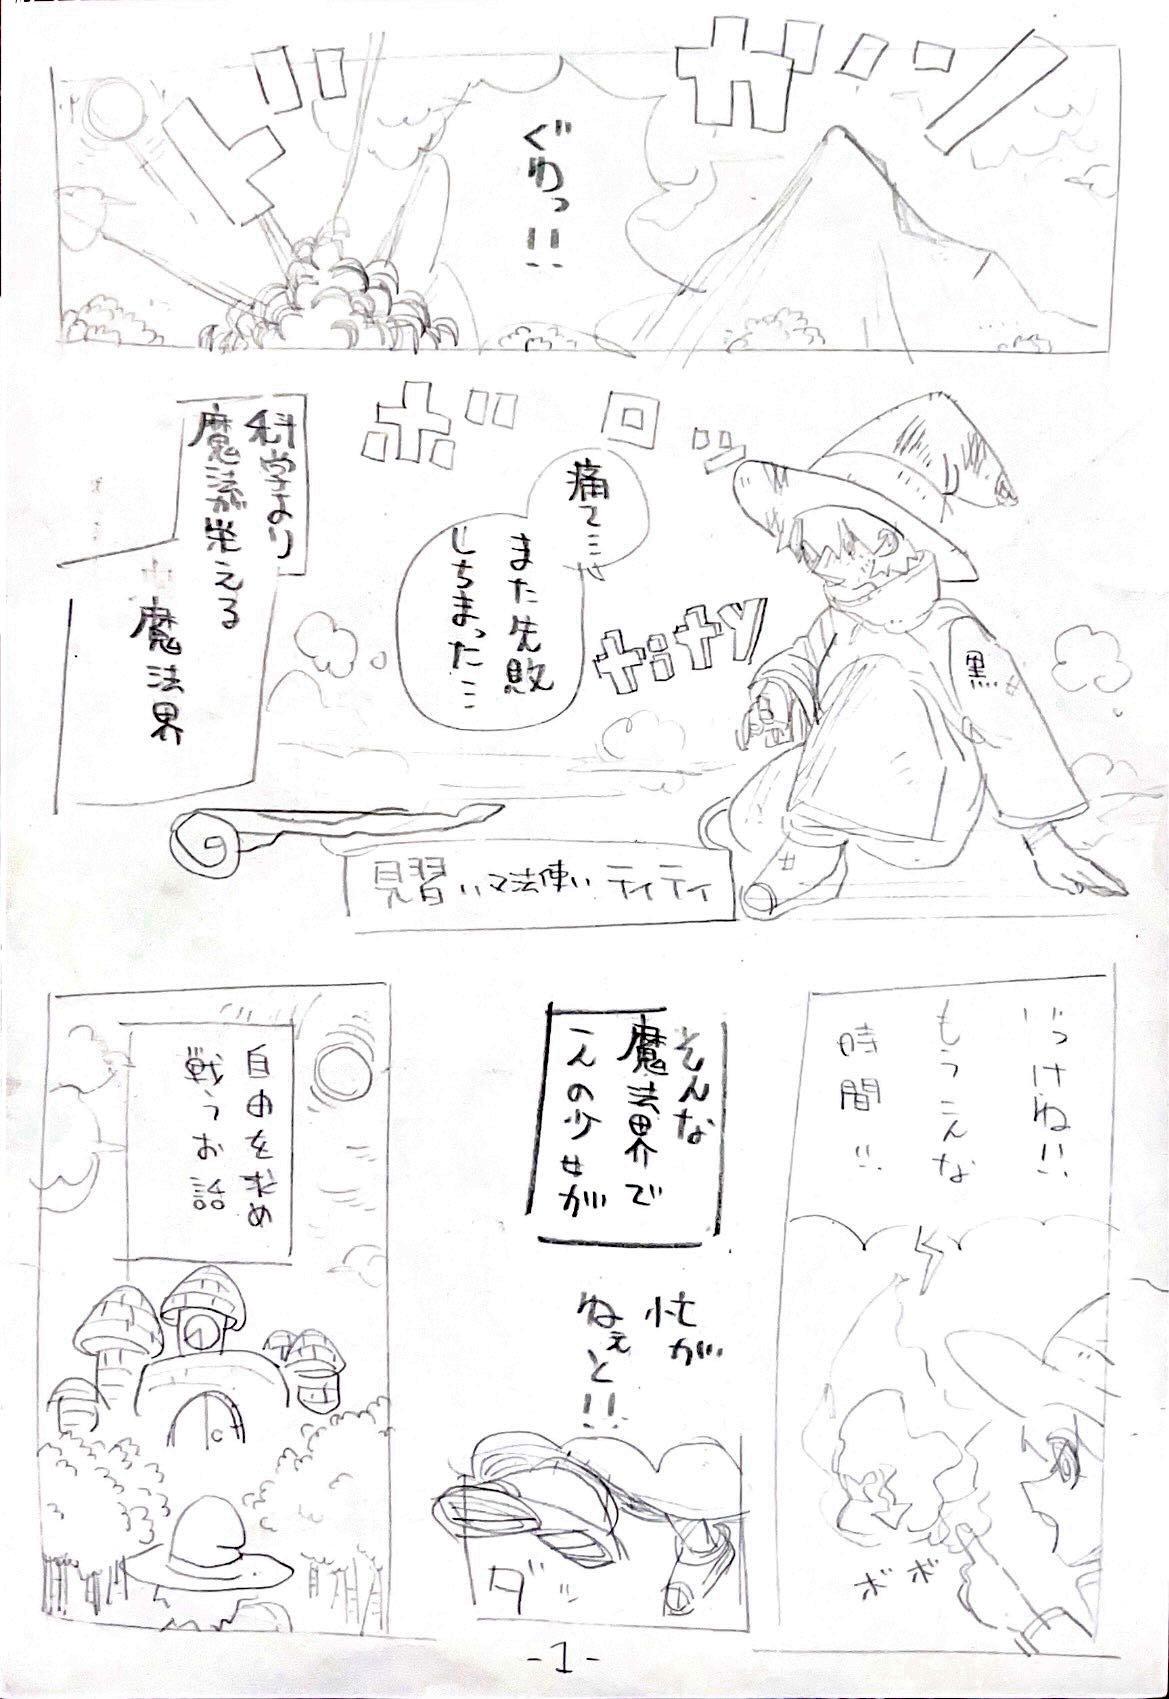 ガシャン
ドドド
ぐわっ!!
ボロッ
痛て…
また失敗
しちまった…
tity
黒
科学より
魔法が栄える
魔法界
見習い マ法使い ティティ
いっけね!!
もうこんな
時間!!
ボボ
そんな
魔法界で
一人の少女が
急が
ねぇと!!
ダッ
自由を求め
戦うお話
-1-